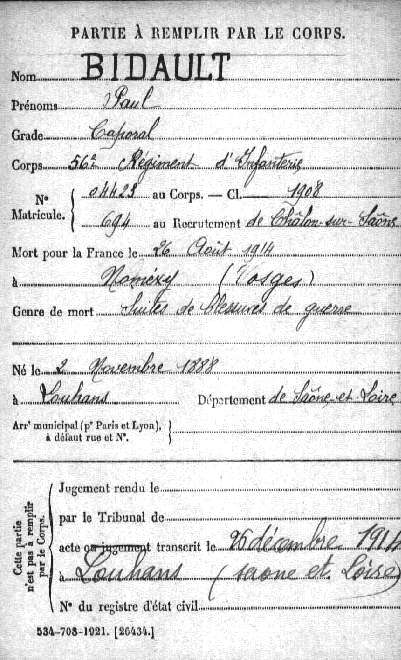 PARTIE À REMPLIR PAR LE CORPS.
Nom BIDAULT
Prénoms Paul
Grade Caporal
Corps 56e Régiment d'Infanterie
N° Matricule. { 04423 au Corps. — Cl. 1908
694 au Recrutement de Châlon-sur-Saône
Mort pour la France le 26 Août 1914
à Nomexy (Vosges)
Genre de mort Suites de blessures de guerre
Né le 2 Novembre 1888
à Louhans Département de Saône-et-Loire
Arrt municipal (pr Paris et Lyon), à défaut rue et N°. }
Cette partie n'est pas à remplir par le Corps.
Jugement rendu le
par le Tribunal de
acte ou jugement transcrit le 25 décembre 1914
à Louhans (saone et Loire)
N° du registre d'état civil
534-708-1921. [26434.]